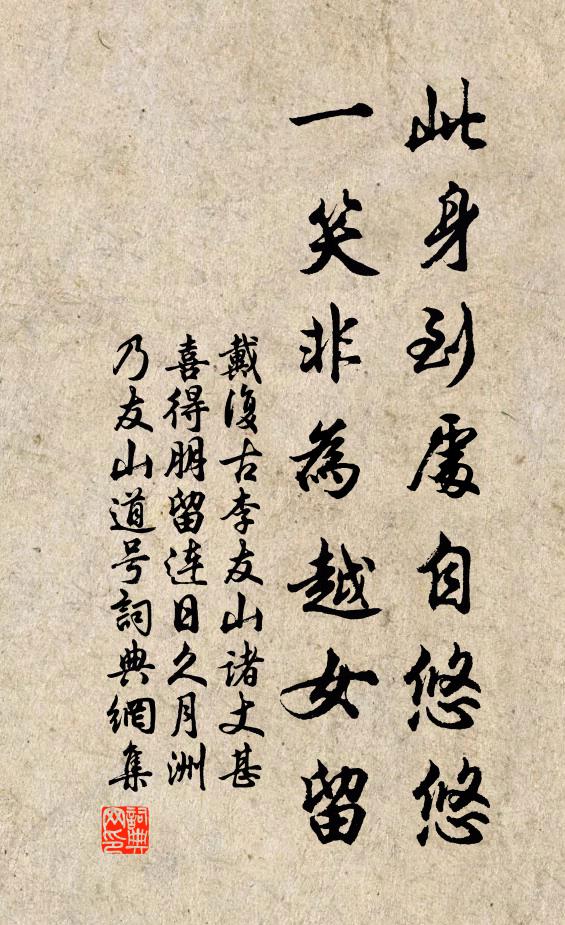 此身到處自悠悠
一笑非為越女留
戴復古李友山諸丈甚
喜得朋留连日久月洲
乃友山道号詞典網集
詞典
网印